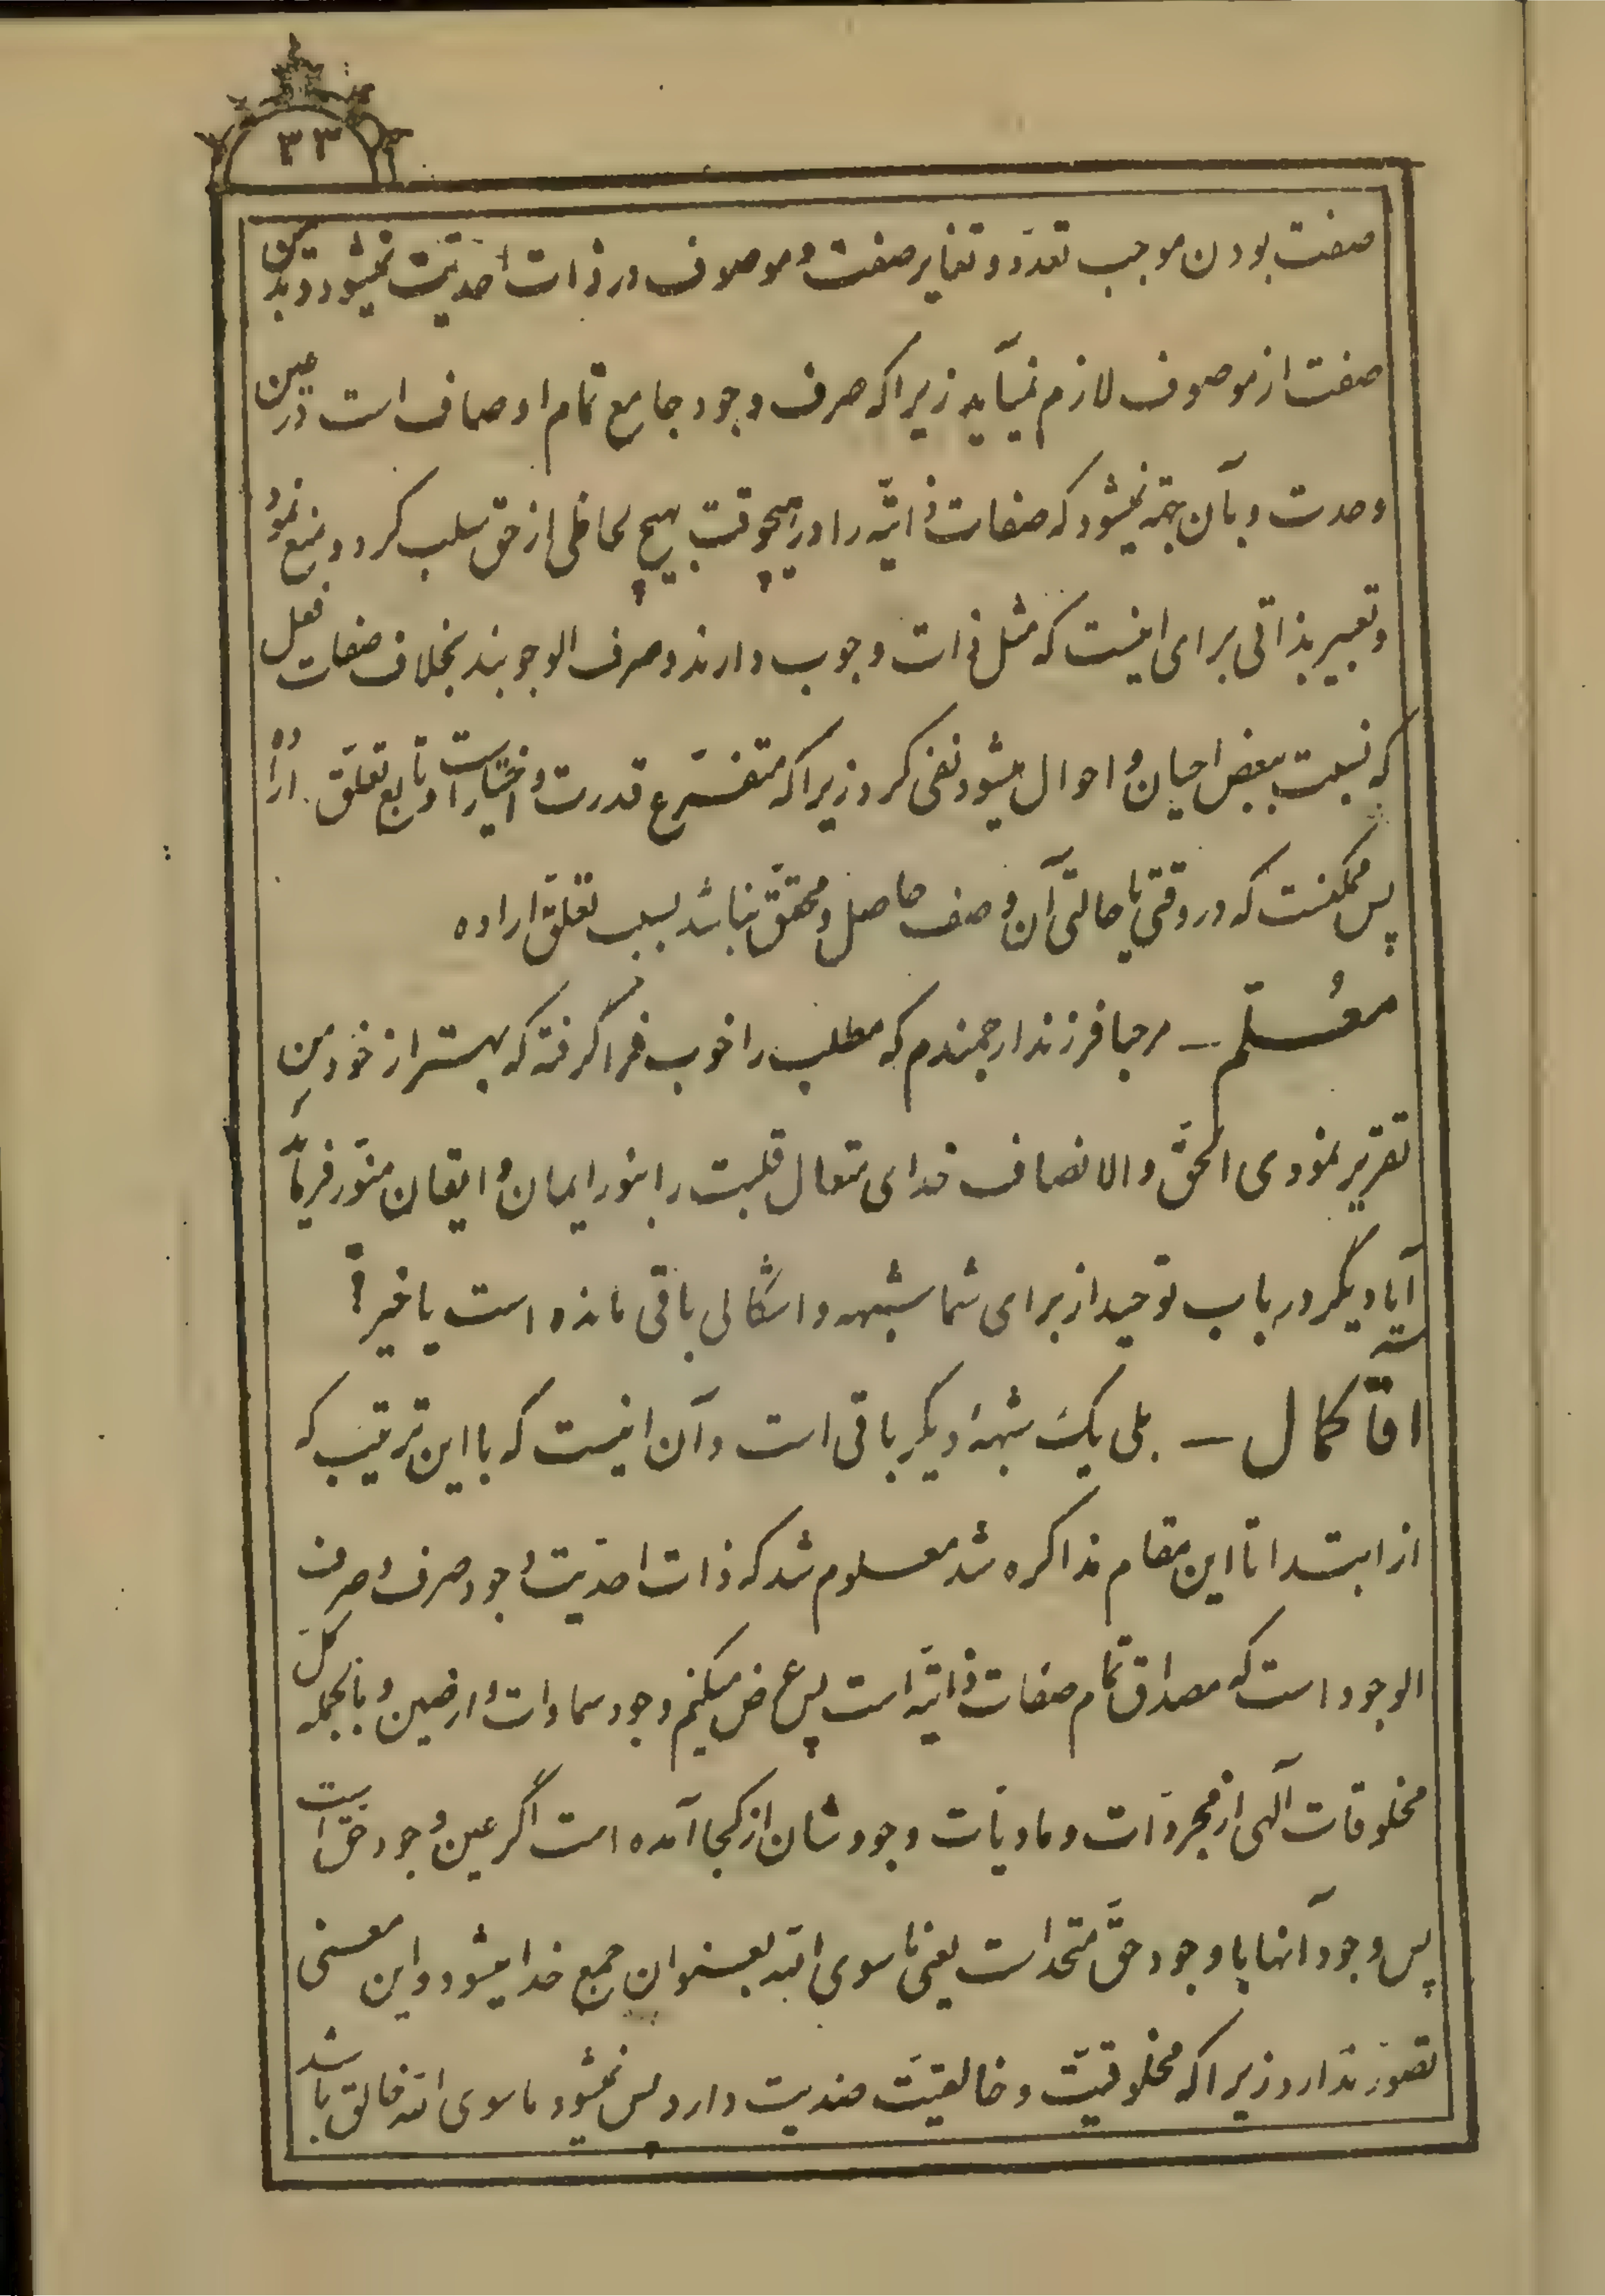 ۳۳
صفت بودن موجب تعدّد و تغایر صفت و موصوف در ذات احدیّت نمیشود و تبدّن
صفت از موصوف لازم نمیآید زیرا که صرف وجود جامع تمام اوصاف است در عین
وحدت و بآن جهة نمیشود که صفات ذاتیّه را در هیچوقت بهیچ لحاظی از حق سلب کرد و منع نمود
و تعبیر بذاتی برای اینست که مثل ذات وجوب دارند و صرف الوجوبند بخلاف صفات فعل
که نسبت ببعض احیان و احوال میشود نفی کرد زیرا که متفرّع قدرت و اختیار است و تابع تعلّق اراده
پس ممکنست که در وقتی یا حالتی آن وصف حاصل و محقّق نباشد بسبب تعلّق اراده
معُلّم – مرحبا فرزند ارجمندم که مطلب را خوب فرا گرفته که بهتر از خود من
تقریر نمودی الحقّ و الانصاف خدای متعال قلبت را بنور ایمان و ایقان منوّر فرماید
آیا دیگر در باب توحید از برای شما شبهه و اشکالی باقی مانده است یا خیر؟
آقا کمال – بلی یک شبهۀ دیگر باقی است و آن اینست که با این ترتیب که
از ابتدا تا این مقام مذاکره شد معلوم شد که ذات احدیّت وجود صرف و صرف
الوجود است که مصداق تمام صفات ذاتیّه است پس عرض میکنم وجود سماوات و ارضین و بالجمله کلّ
مخلوقات آلهی از مجردّات و مادیّات وجودشان از کجا آمده است اگر عین وجود حقّ است
پس وجود آنها با وجود حقّ متحد است یعنی ما سوی الله بعنوان جمع خدا میشود و این معنی
تصوّر ندارد زیرا که مخلوقیّت و خالقیّت ضدیت دارد پس نمیشود ما سوی الله خالق باشد